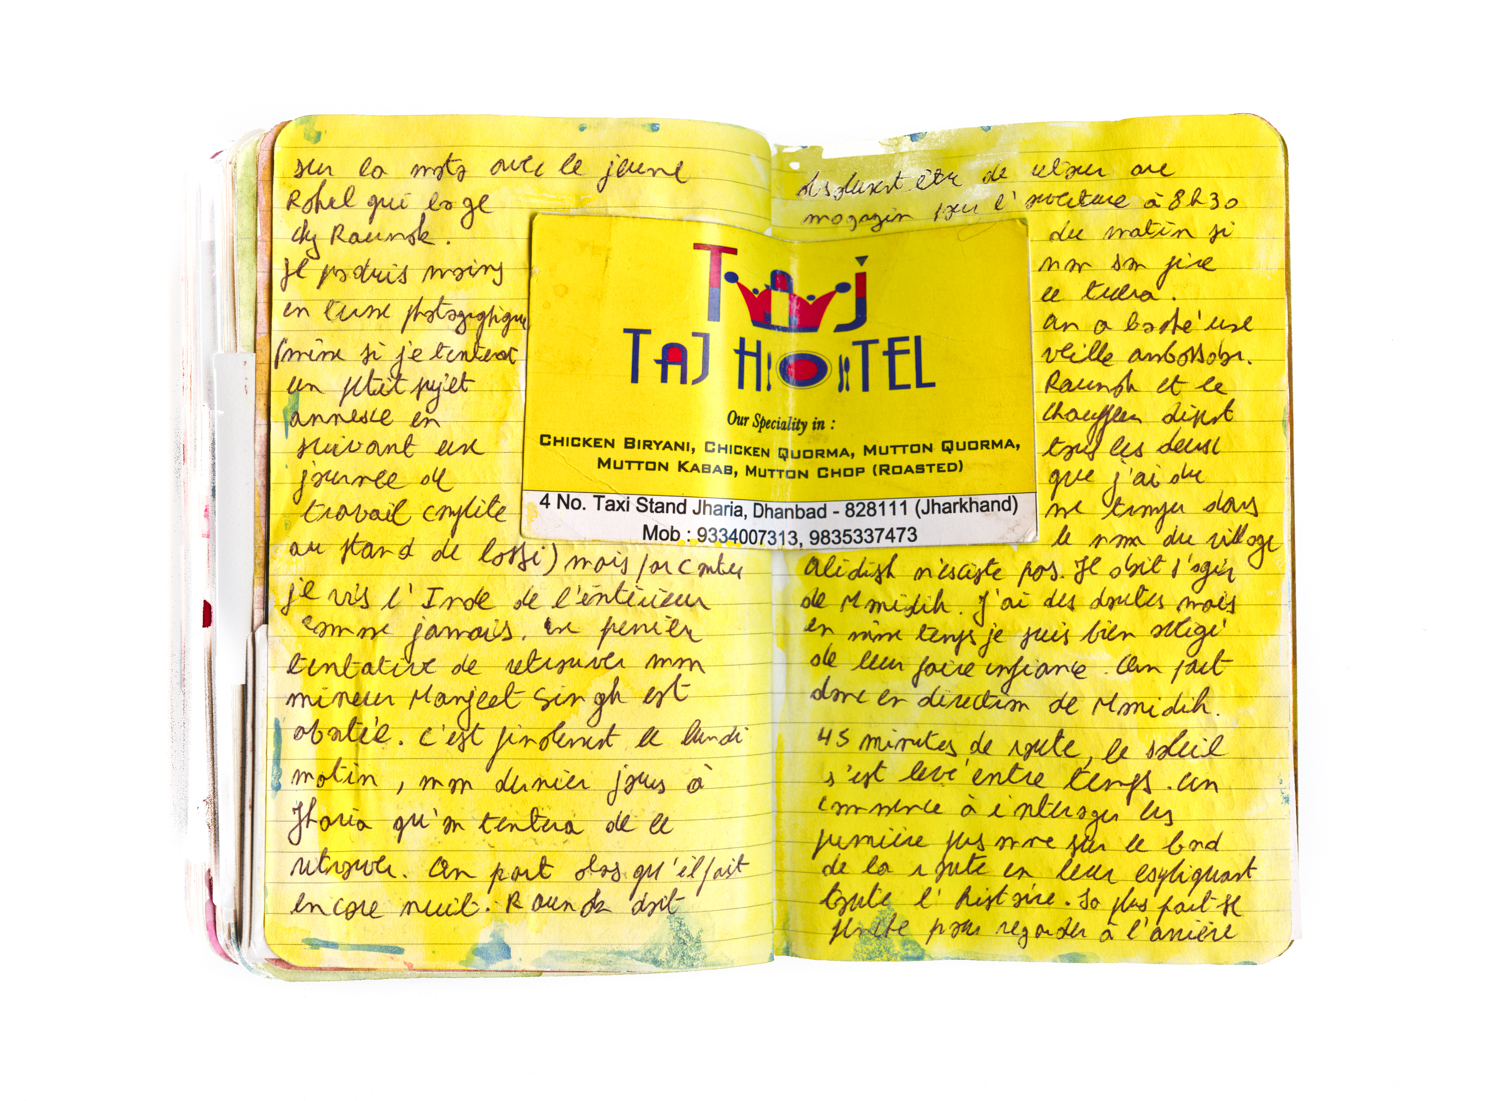 sur la moto avec le jeune
Rohel qui loge
chz Raunak.
Je produis moins
en terme photographique
(même si je tenterai
un petit projet
annexe en
suivant une
journée de
travail complète
au stand de lassi) mais par contre
je vis l'Inde de l'intérieur
comme jamais. Une première
tentative de retrouver mon
mineur Manjeet Singh est
avortée. C'est finalement le lundi
matin, mon dernier jour à
Jharia qu'on tentera de le
retrouver. On part alors qu'il fait
encore nuit. Raunak doit
TAJ
TAJ HOTEL
Our Speciality in :
CHICKEN BIRYANI, CHICKEN QUORMA, MUTTON QUORMA,
MUTTON KABAB, MUTTON CHOP (ROASTED)
4 No. Taxi Stand Jharia, Dhanbad - 828111 (Jharkhand)
Mob : 9334007313, 9835337473
absolument être de retour au
magazin pour l'ouverture à 8h30
du matin si
non son père
le tuera.
On a booké une
vieille ambassador.
Raunak et le
chauffeur disent
tous les deux
que j'ai du
me tromper dans
le nom du village
Alidish n'existe pas. Il doit s'agir
de Moonidih. J'ai des doutes mais
en même temps je suis bien obligé
de leur faire confiance. On part
donc en direction de Moonidih.
45 minutes de route, le soleil
s'est levé entre temps. On
commence à interroger les
premières personnes sur le bord
de la route en leur expliquant
toute l'histoire. Le plus part se
penche pour regarder à l'arrière